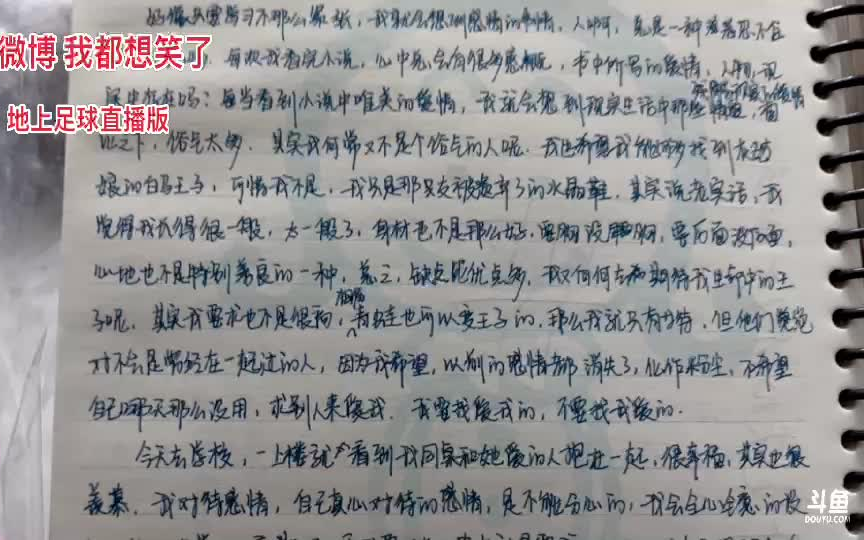 好像只要学习不那么紧张，我就会想到感情的事情，人啊，总是一种
微博 我都想笑了
每次我看完小说，心中总会有很多感概，书中所写的爱情，人物，现
实生活有吗？每当看到小说中唯美的爱情，我就会想到现实生活中那些情侣，
地上足球直播版
俗气太多．其实我何尝又不是个俗气的人呢．我也希望我能够找到
的白马王子，可惜我不是，我只是那只被遗弃了的水晶鞋．其实说老实话，我
觉得我长得很一般，太一般了，身材也不是那么好，要胸没胸，要后面没后面，
心地也不是特别善良的一种，总之，缺点比优点多，我又何何去期待我生命中的王
子呢．其实我要求也不是很高，青蛙也可以变王子的，那么我就只有等待，但他们绝
对不会是曾经在一起过的人，因为我希望，以前的感情都消失了，化作粉尘，不希望
自己哪天那么没用，求别人来爱我．我要找爱我的，不要找我爱的．
今天去学校，一上楼就看到我同桌和她爱的人抱在一起，很幸福，其实也很
羡慕．我对待感情，自己真心对待的感情，是不能分心的，我会全心全意的投
斗鱼
DOUYU.COM